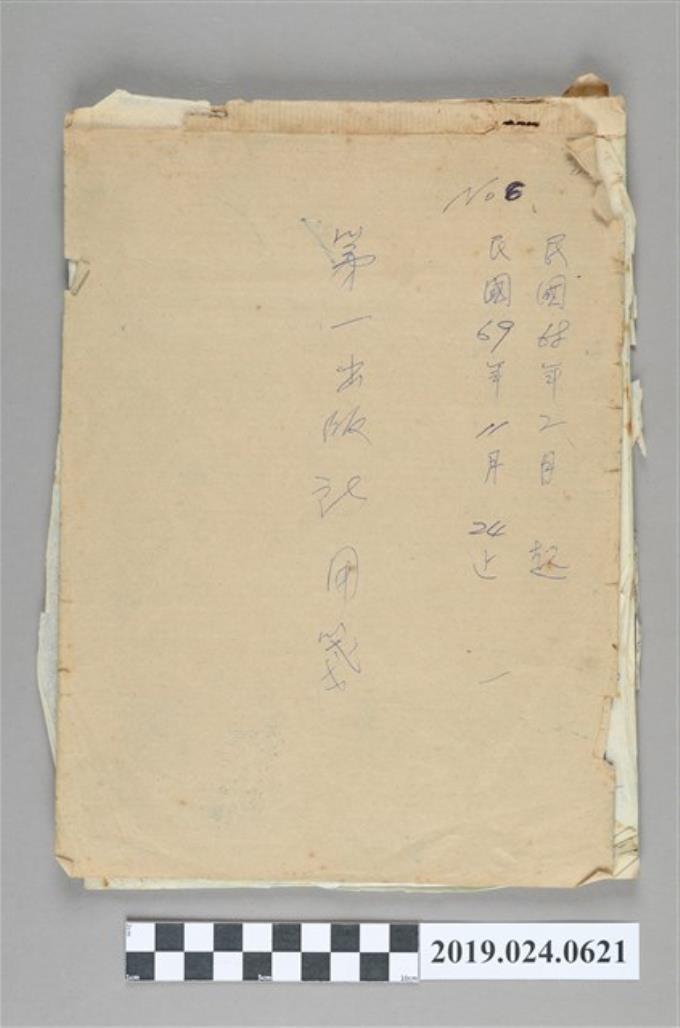 No 6
民國68年2月 起
民國69年11月 24 止
第一出版社用箋
2019.024.0621